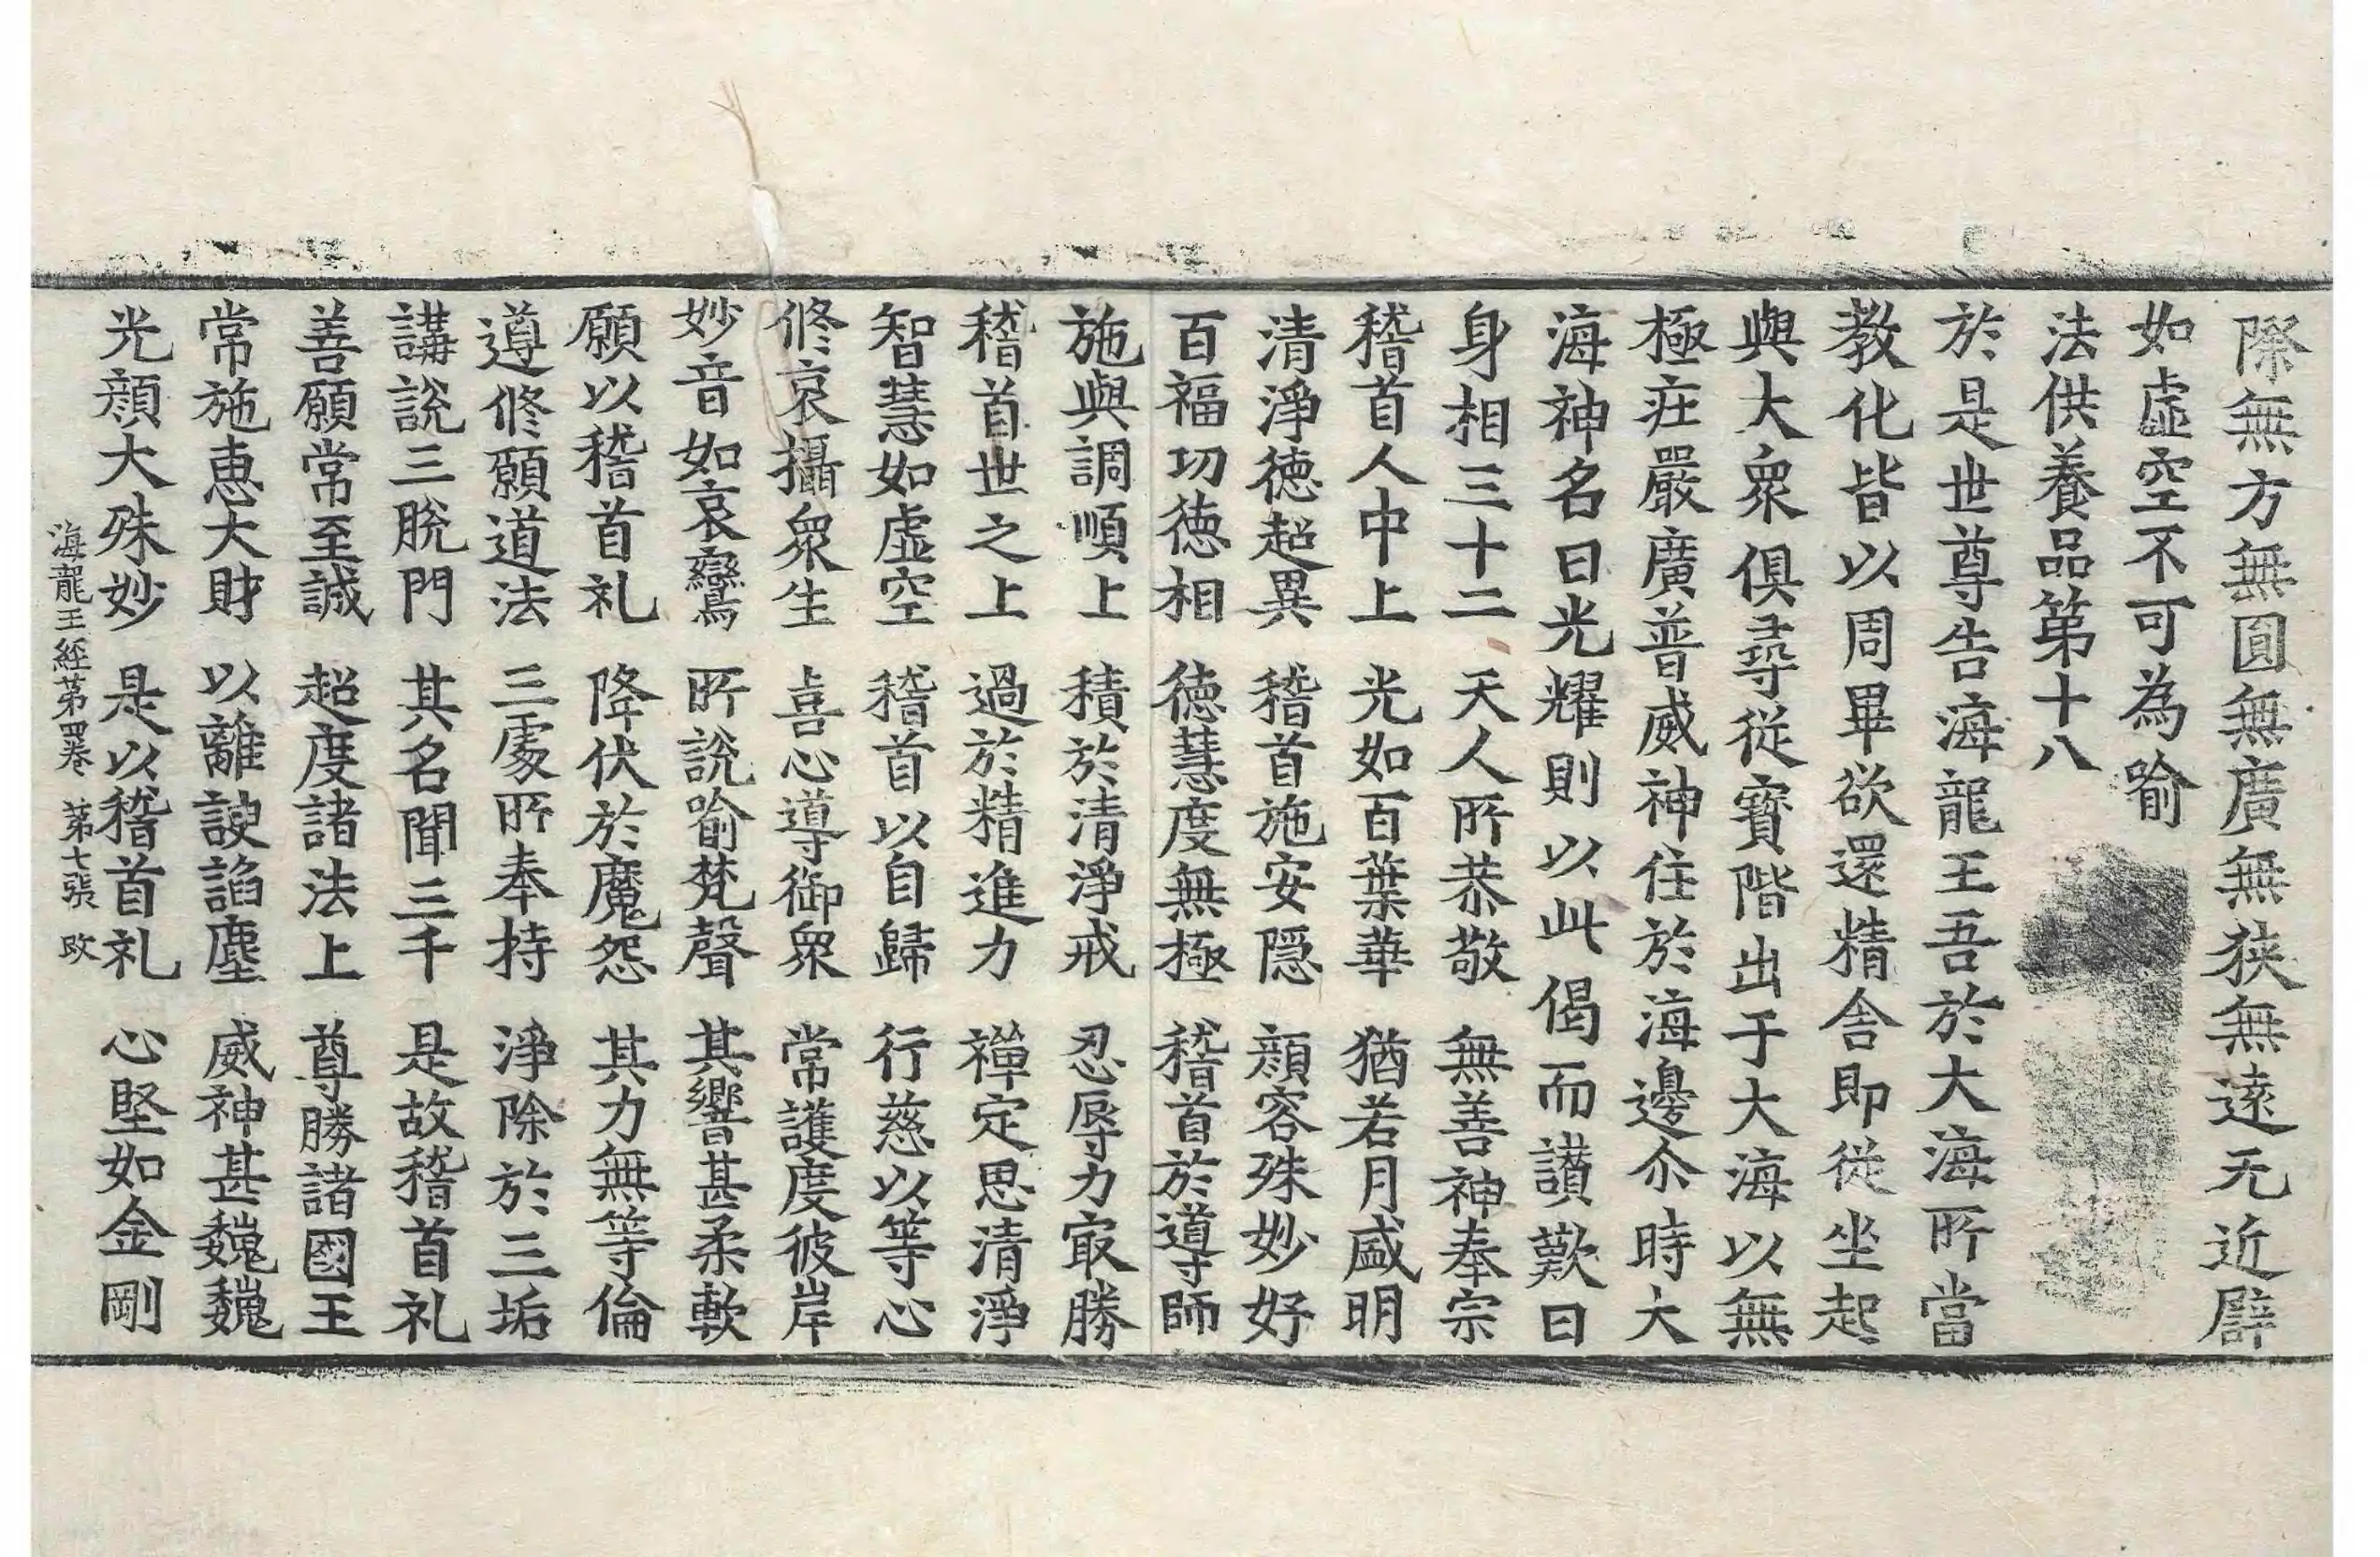 際無方無圓無廣無狹無遠无近辟
如虛空不可為喻
法供養品第十八
於是世尊告海龍王吾於大海所當
教化皆以周畢欲還精舍即從坐起
與大衆俱尋從寶階出于大海以無
極莊嚴廣普威神住於海邊尒時大
海神名曰光耀則以此偈而讃歎曰
身相三十二　天人所恭敬　無善神奉宗
稽首人中上　光如百葉華　猶若月盛明
清淨德超異　稽首施安隱　顔容殊妙好
百福功德相　德慧度無極　稽首於導師
施與調順上　積於清淨戒　忍辱力㝡勝
稽首世之上　過於精進力　禪定思清淨
智慧如虛空　稽首以自歸　行慈以等心
修哀攝衆生　喜心導御衆　常護度彼岸
妙音如哀鸞　所說喻梵聲　其響甚柔軟
願以稽首礼　降伏於魔怨　其力無等倫
遵修願道法　三處所奉持　淨除於三垢
講說三脫門　其名聞三千　是故稽首礼
善願常至誠　超度諸法上　尊勝諸國王
常施惠大財　以離諛諂塵　威神甚巍巍
光顔大殊妙　是以稽首礼　心堅如金剛
海龍王經第四卷　第七張　改